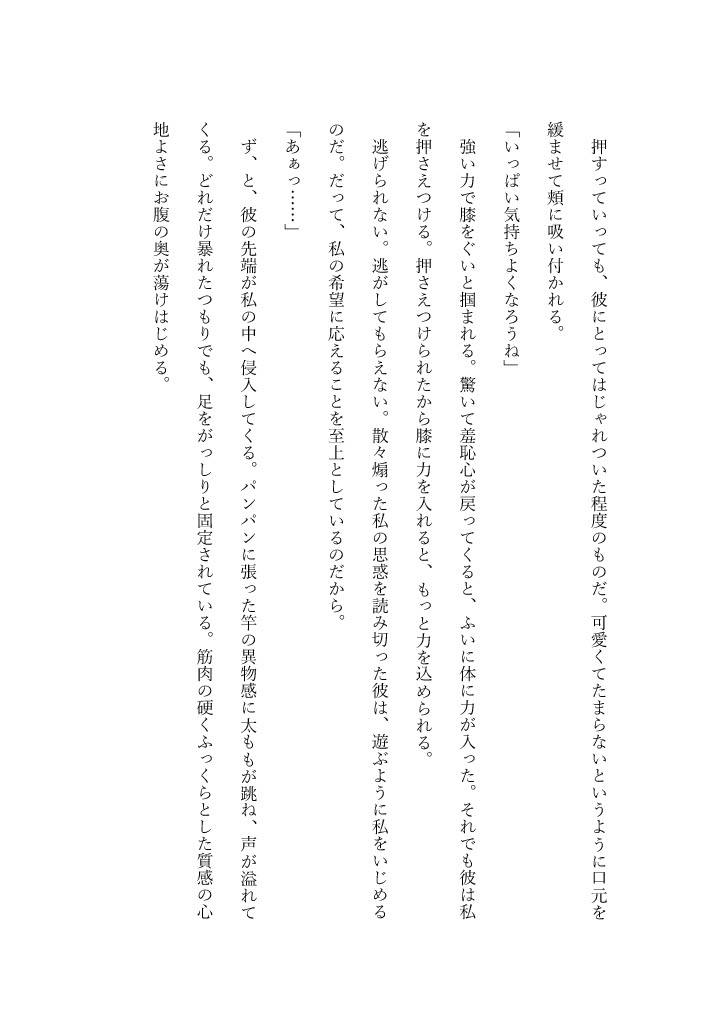 押すっていっても、彼にとってはじゃれついた程度のものだ。可愛くてたまらないというように口元を
緩ませて頬に吸い付かれる。
「いっぱい気持ちよくなろうね」
強い力で膝をぐいと掴まれる。驚いて羞恥心が戻ってくると、ふいに体に力が入った。それでも彼は私
を押さえつける。押さえつけられたから膝に力を入れると、もっと力を込められる。
逃げられない。逃がしてもらえない。散々煽った私の思惑を読み切った彼は、遊ぶように私をいじめる
のだ。だって、私の希望に応えることを至上としているのだから。
「あぁっ……」
ず、と、彼の先端が私の中へ侵入してくる。パンパンに張った竿の異物感に太ももが跳ね、声が溢れて
くる。どれだけ暴れたつもりでも、足をがっしりと固定されている。筋肉の硬くふっくらとした質感の心
地よさにお腹の奥が蕩けはじめる。